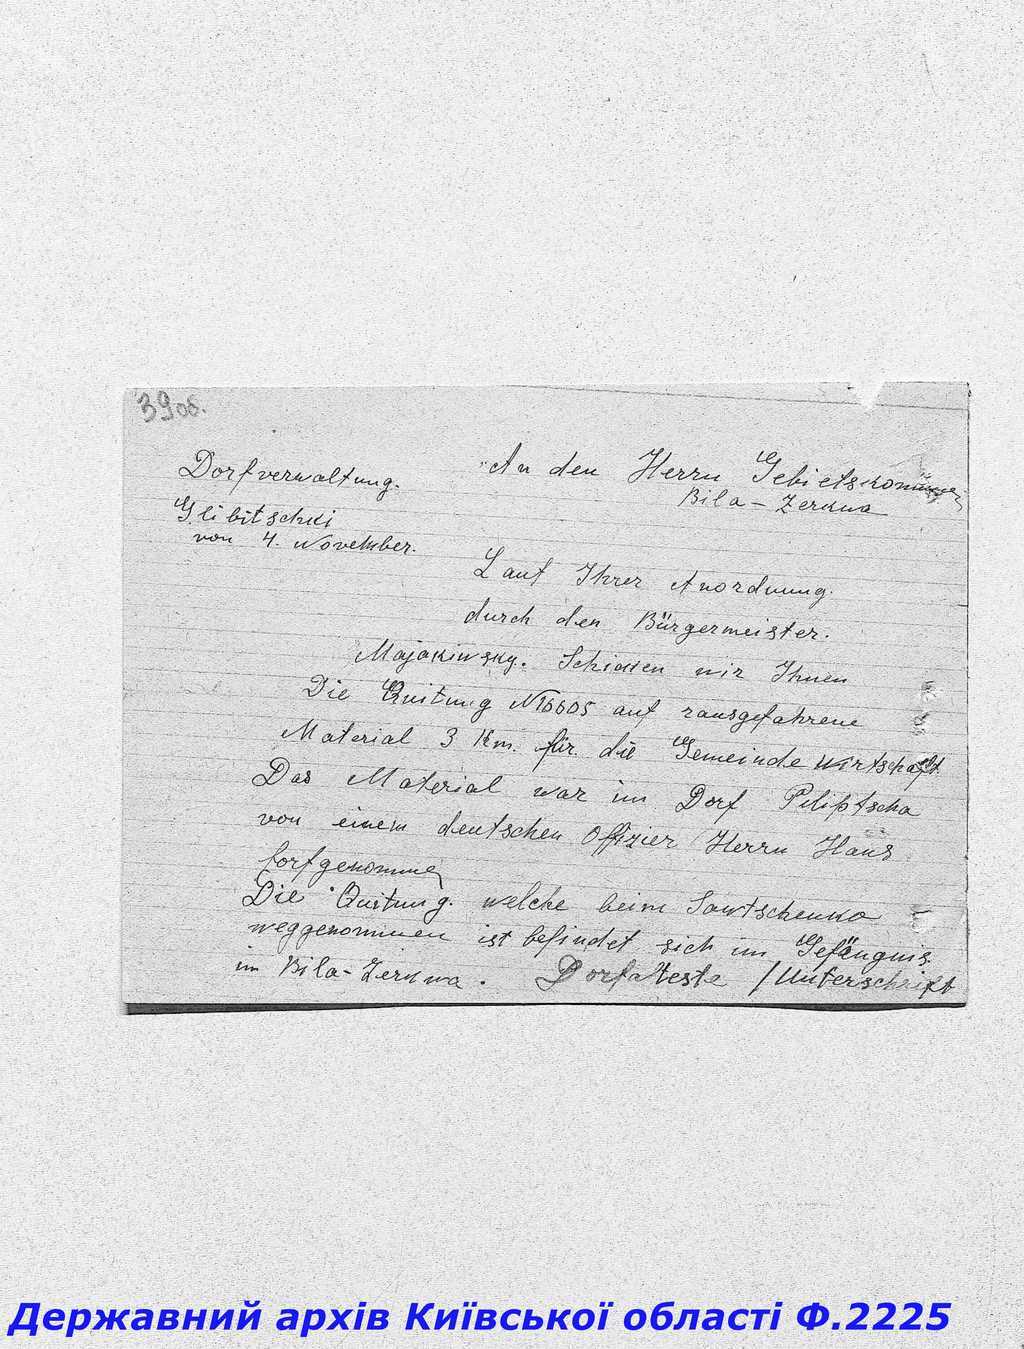 39об.
Dorfverwaltung.
Glibitschki
von 4. November.
An den Herrn Gebietskommissar
Bila-Zerkwa
Laut Ihrer Anordnung.
durch den Bürgermeister.
Majakiwsky. Schicken wir Ihnen
Die Quitung N16605 auf rausgefahrene
Material 3 Km. für die Gemeindewirtschaft
Das Material war im Dorf Piliptscha
von einem deutschen Offizier Herrn Hans
forfgenommen
Die Quitung. welche beim Sawtschenko
weggenommen ist befindet sich im Gefängnis
im Bila-Zerkwa. Dorfälteste /Unterschrift
Державний архів Київської області Ф.2225